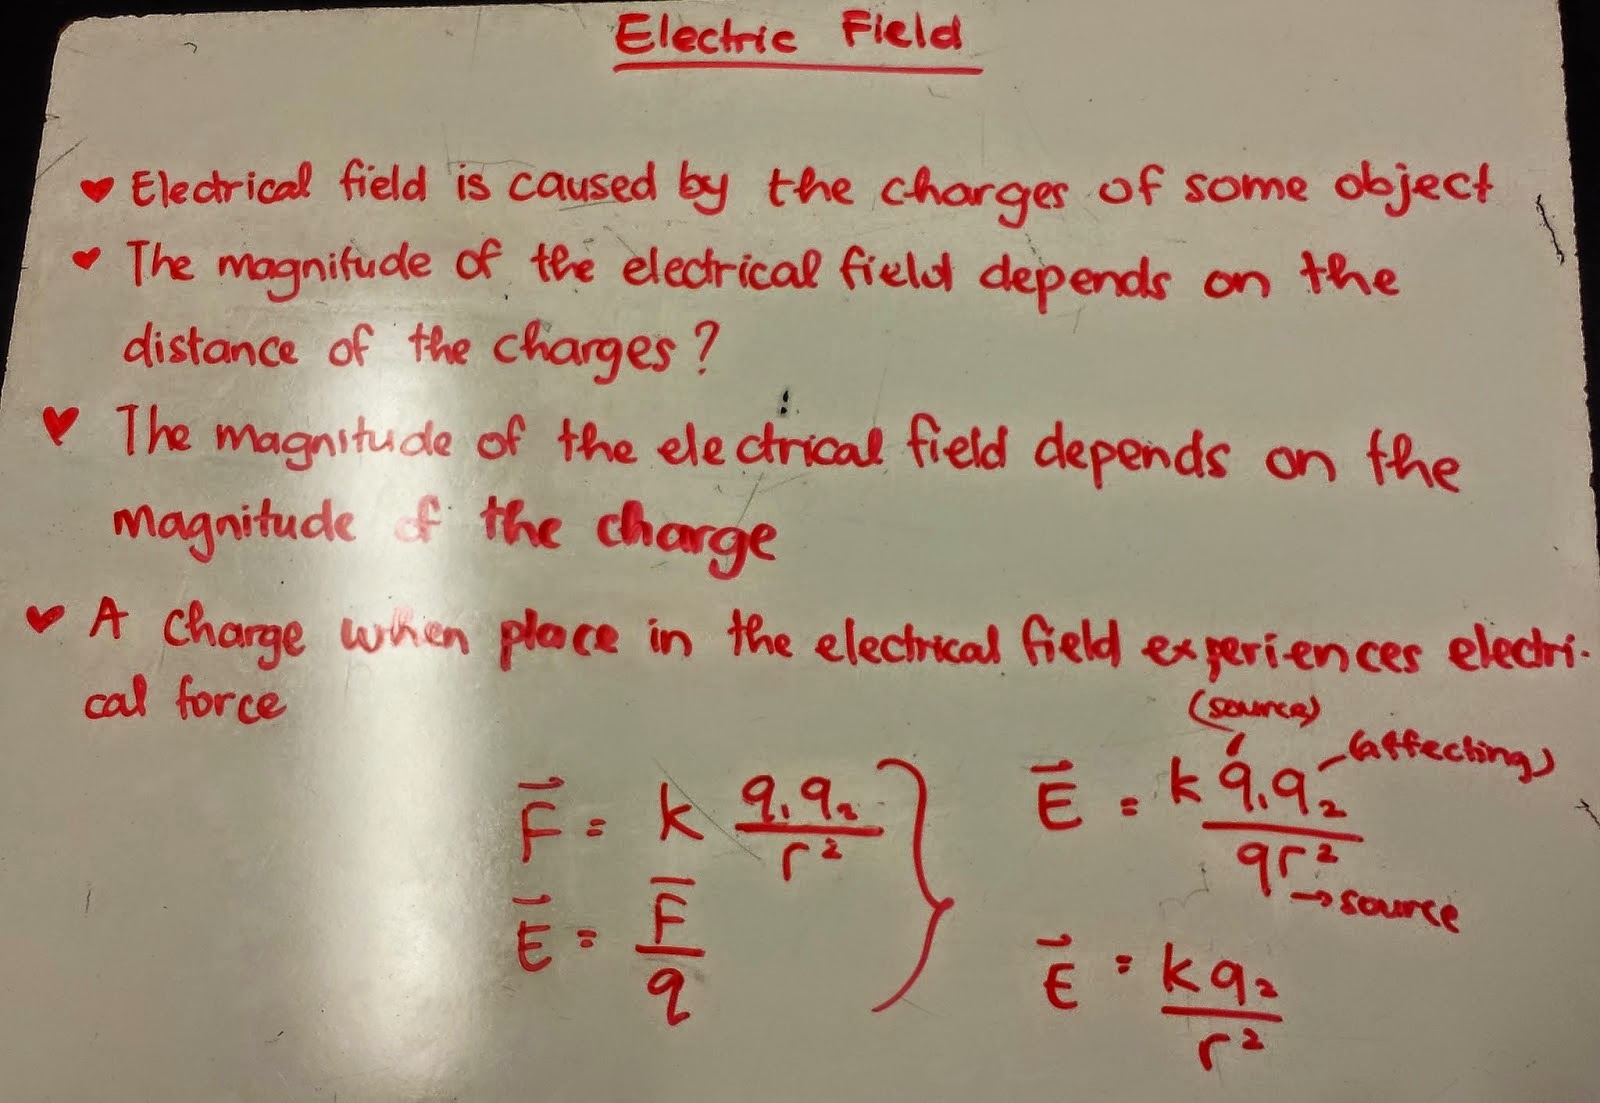 Electric Field
♥ Electrical field is caused by the charges of some object
♥ The magnitude of the electrical field depends on the
distance of the charges?
♥ The magnitude of the electrical field depends on the
magnitude of the charge
♥ A charge when place in the electrical field experiences electri-
cal force
(source)
(affecting)
F⃗ = k q₁q₂ / r²
E⃗ = k q₁q₂ / qr²
→ source
E⃗ = F⃗ / q
E⃗ = kq₂ / r²